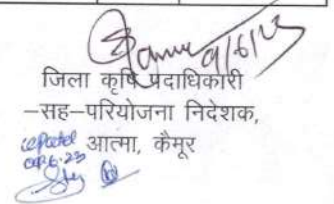 9/6/23
जिला कृषि पदाधिकारी
-सह-परियोजना निदेशक,
आत्मा, कैमूर